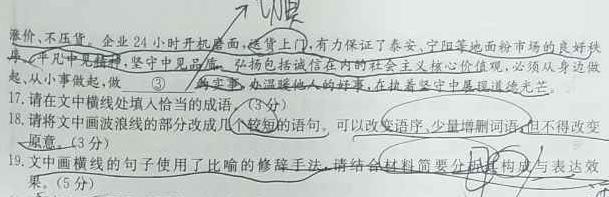 涨价、不压货。企业24小时开机磨面,送货上门,有力保证了泰安、宁阳等地面粉市场的良好秩
序。平凡中见精神,坚守中见品质。弘扬包括诚信在内的社会主义核心价值观,必须从身边做
起、从小事做起,做 ③ 的实事、办温暖他人的好事,在执着坚守中展现道德光芒。
17.请在文中横线处填入恰当的成语。(3分)
18.请将文中画波浪线的部分改成几个较短的语句。可以改变语序、少量增删词语,但不得改变
原意。(3分)
19.文中画横线的句子使用了比喻的修辞手法,请结合材料简要分析其构成与表达效
果。(5分)